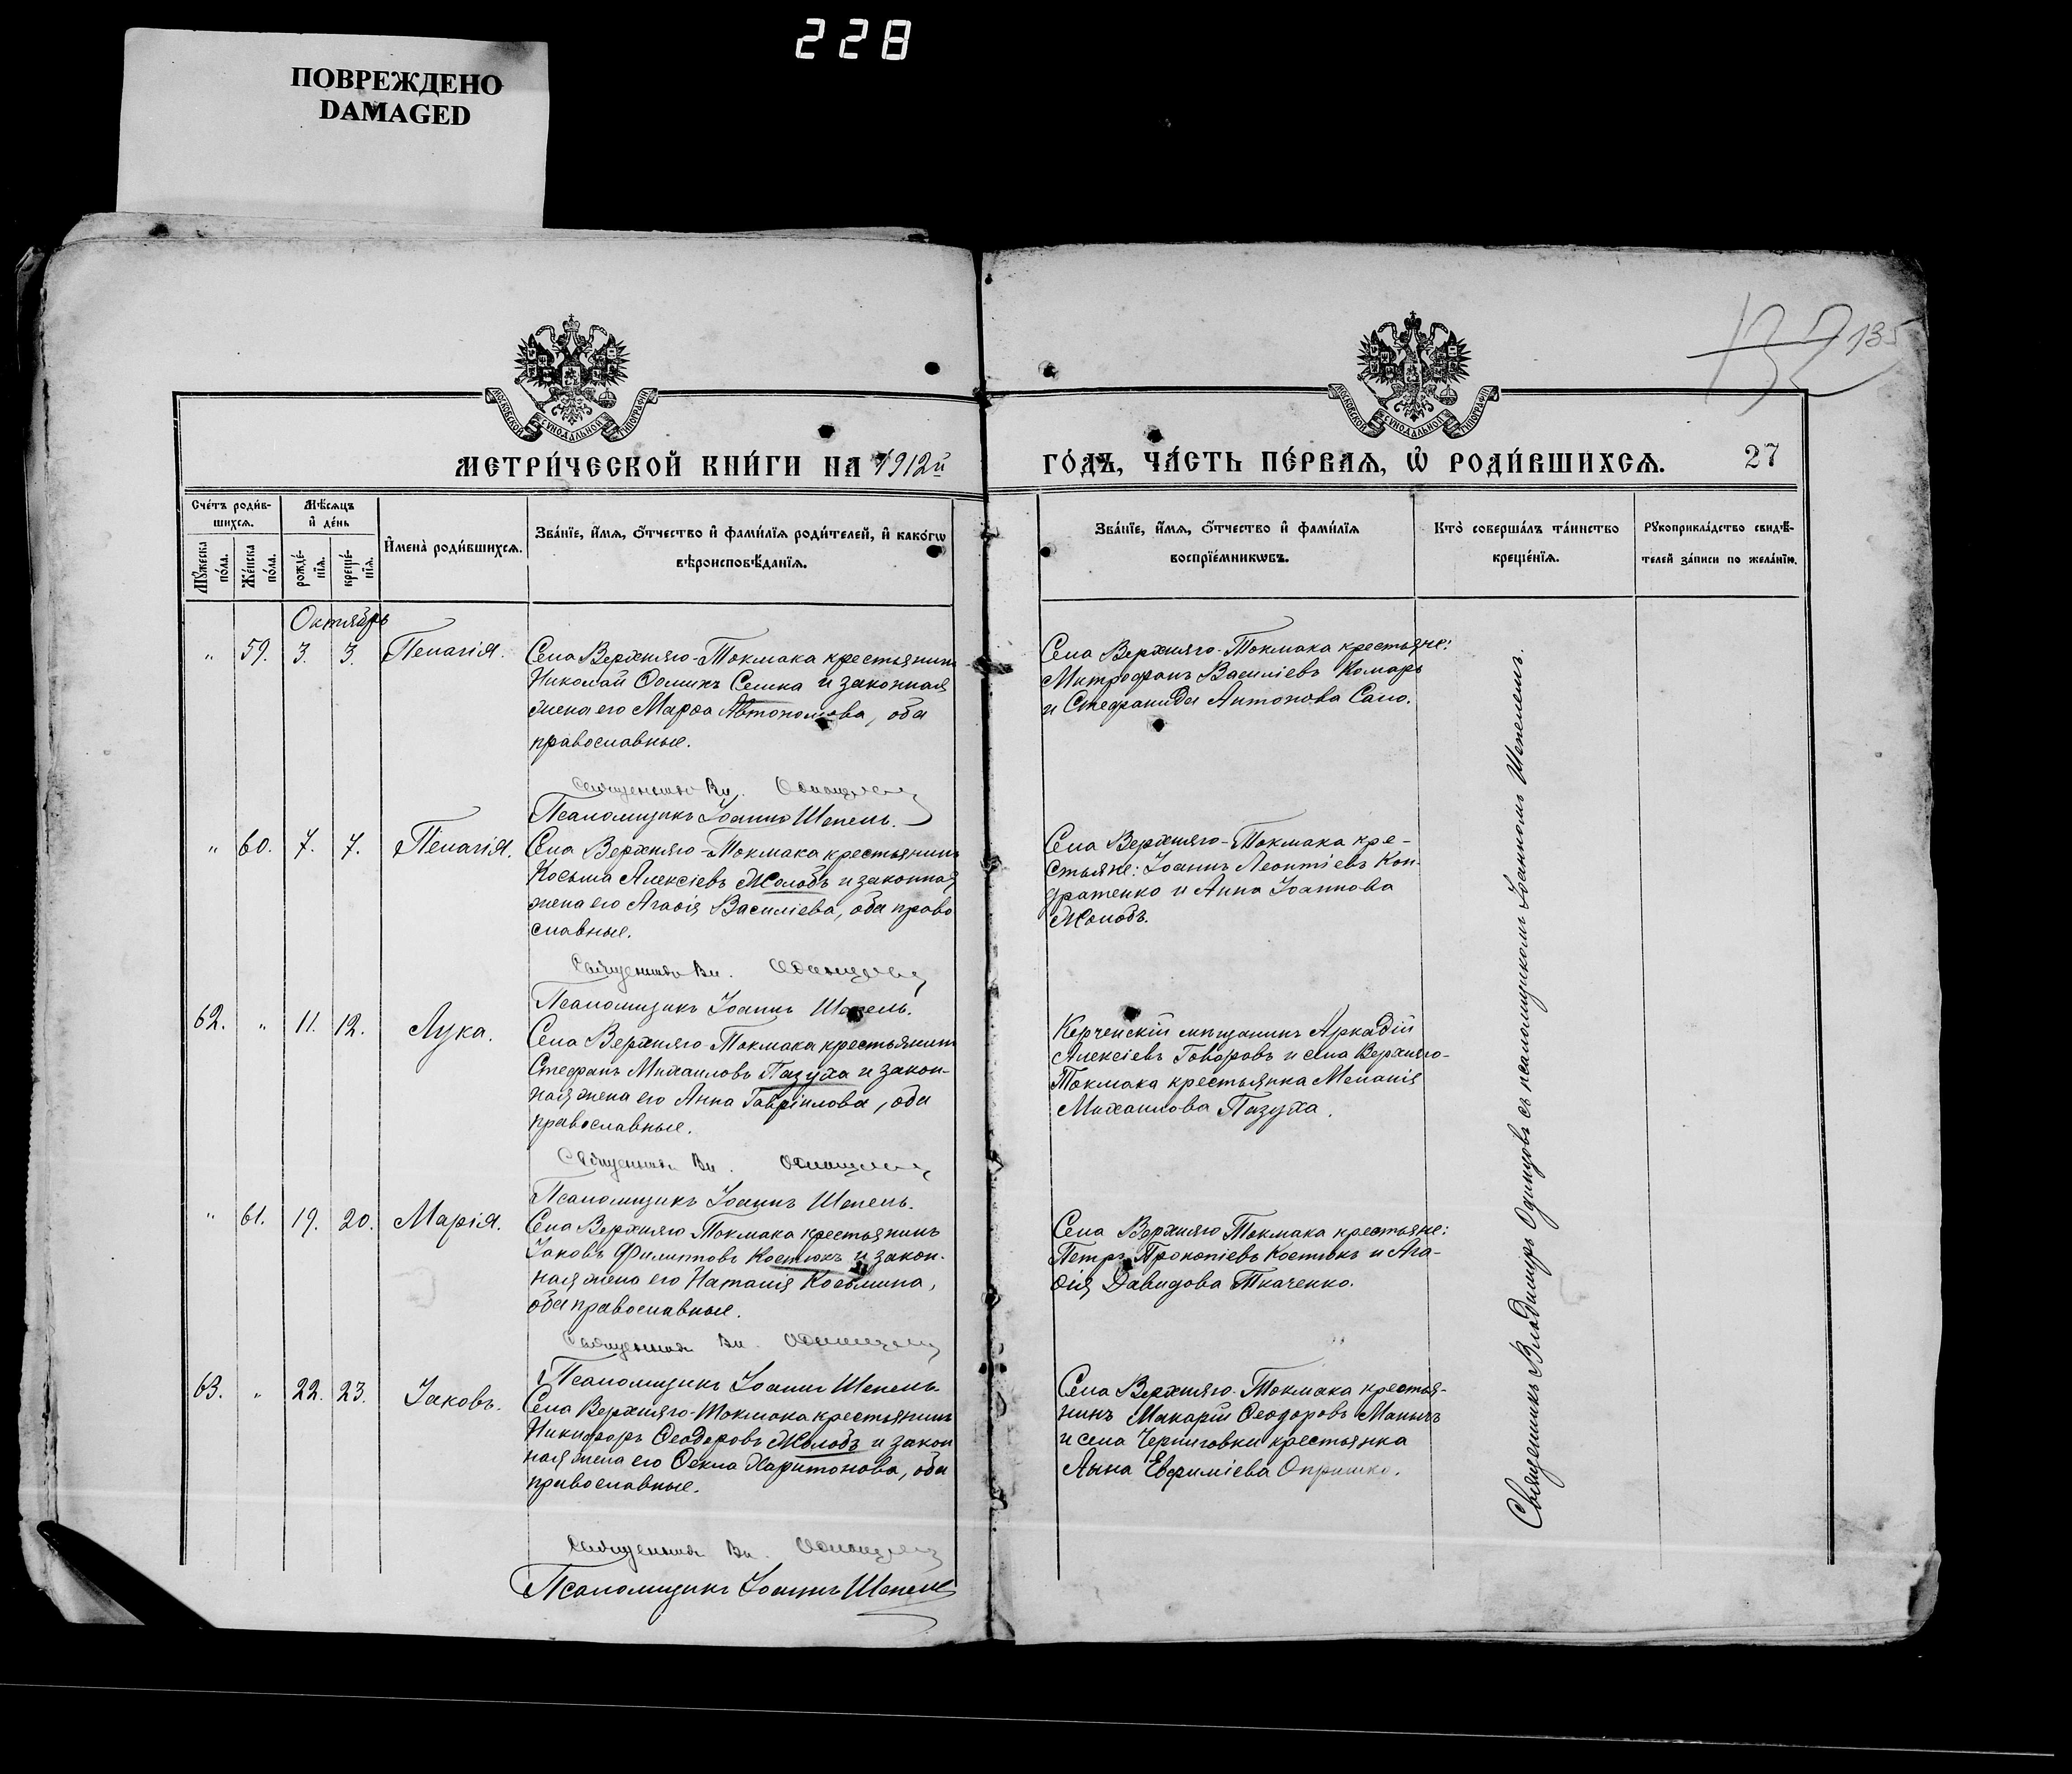 228
ПОВРЕЖДЕНО
DAMAGED
135
МОСКОВСКОЙ СУНОДАЛЬНОЙ ТИПОГРАФІИ
МОСКОВСКОЙ СУНОДАЛЬНОЙ ТИПОГРАФІИ
МЕТРИ́ЧЕСКОЙ КНИ́ГИ НА 1912й
ГО́ДЪ, ЧА́СТЬ ПЕ́РВАѦ, Ѡ РОДИ́ВШИХСѦ.
27
Сче́тъ роди́в-
шихсѧ.
Мꙋ́жеска
по́ла.
Же́нска
по́ла.
Мѣ́сѧцъ
и҆ де́нь
рожде́-
нїѧ.
креще́-
нїѧ.
И҆мена̀ роди́вшихсѧ.
Зва́нїе, и҆́мѧ, ѻ҆́тчество и҆ фами́лїѧ роди́телей, и҆ како́гѡ
вѣроисповѣ́данїѧ.
Зва́нїе, и҆́мѧ, ѻ҆́тчество и҆ фами́лїѧ
воспрїе́мникѡвъ.
Кто̀ соверша́лъ та́инство
креще́нїѧ.
Рꙋкоприкла́дство свидѣ́-
телей за́писи по жела́нїю.
Октябрь
" 59. 3. 3. Пелагія.
Села Верхняго-Токмака крестьянинъ
Николай Ѳоминъ Семка и законная
жена его Марѳа Автономова, оба
православные.
Священникъ Вл. Одинцовъ
Псаломщикъ Іоаннъ Шепель.
Села Верхняго-Токмака крестьяне:
Митрофанъ Василіевъ Комаръ
и Стефанида Антонова Сало.
" 60. 7. 7. Пелагія.
Села Верхняго-Токмака крестьянинъ
Косьма Алексіевъ Жолобъ и законная
жена его Агаѳія Василіева, оба право
славные.
Священникъ Вл. Одинцовъ
Псаломщикъ Іоаннъ Шепель.
Села Верхняго-Токмака кре-
стьяне: Іоаннъ Леонтіевъ Кон-
дратенко и Анна Іоаннова
Жолобъ.
62. " 11. 12. Лука.
Села Верхняго-Токмака крестьянинъ
Стефанъ Михаиловъ Пазуха и закон-
ная жена его Анна Гавріилова, оба
православные.
Священникъ Вл. Одинцовъ
Псаломщикъ Іоаннъ Шепель.
Керченскій мѣщанинъ Аркадій
Алексіевъ Говоровъ и села Верхняго-
Токмака крестьянка Меланія
Михаилова Пазуха.
" 61. 19. 20. Марія.
Села Верхняго Токмака крестьянинъ
Іаковъ Филипповъ Костюкъ и закон-
ная жена его Наталія Косьмина,
оба православные.
Священникъ Вл. Одинцовъ
Псаломщикъ Іоаннъ Шепель.
Села Верхняго Токмака крестьяне:
Петръ Прокопіевъ Костюкъ и Ага-
ѳія Давидова Ткаченко.
63. " 22. 23. Іаковъ.
Села Верхняго-Токмака крестьянинъ
Никифоръ Ѳеодоровъ Жолобъ и закон
ная жена его Ѳекла Харитонова, оба
православные.
Священникъ Вл. Одинцовъ
Псаломщикъ Іоаннъ Шепель
Села Верхняго-Токмака крестья-
нинъ Макарій Ѳеодоровъ
и села Черниговки крестьянка
Анна Евфиміева Опришко.
Священникъ Владиміръ Одинцовъ съ псаломщикомъ Іоанномъ Шепелемъ.